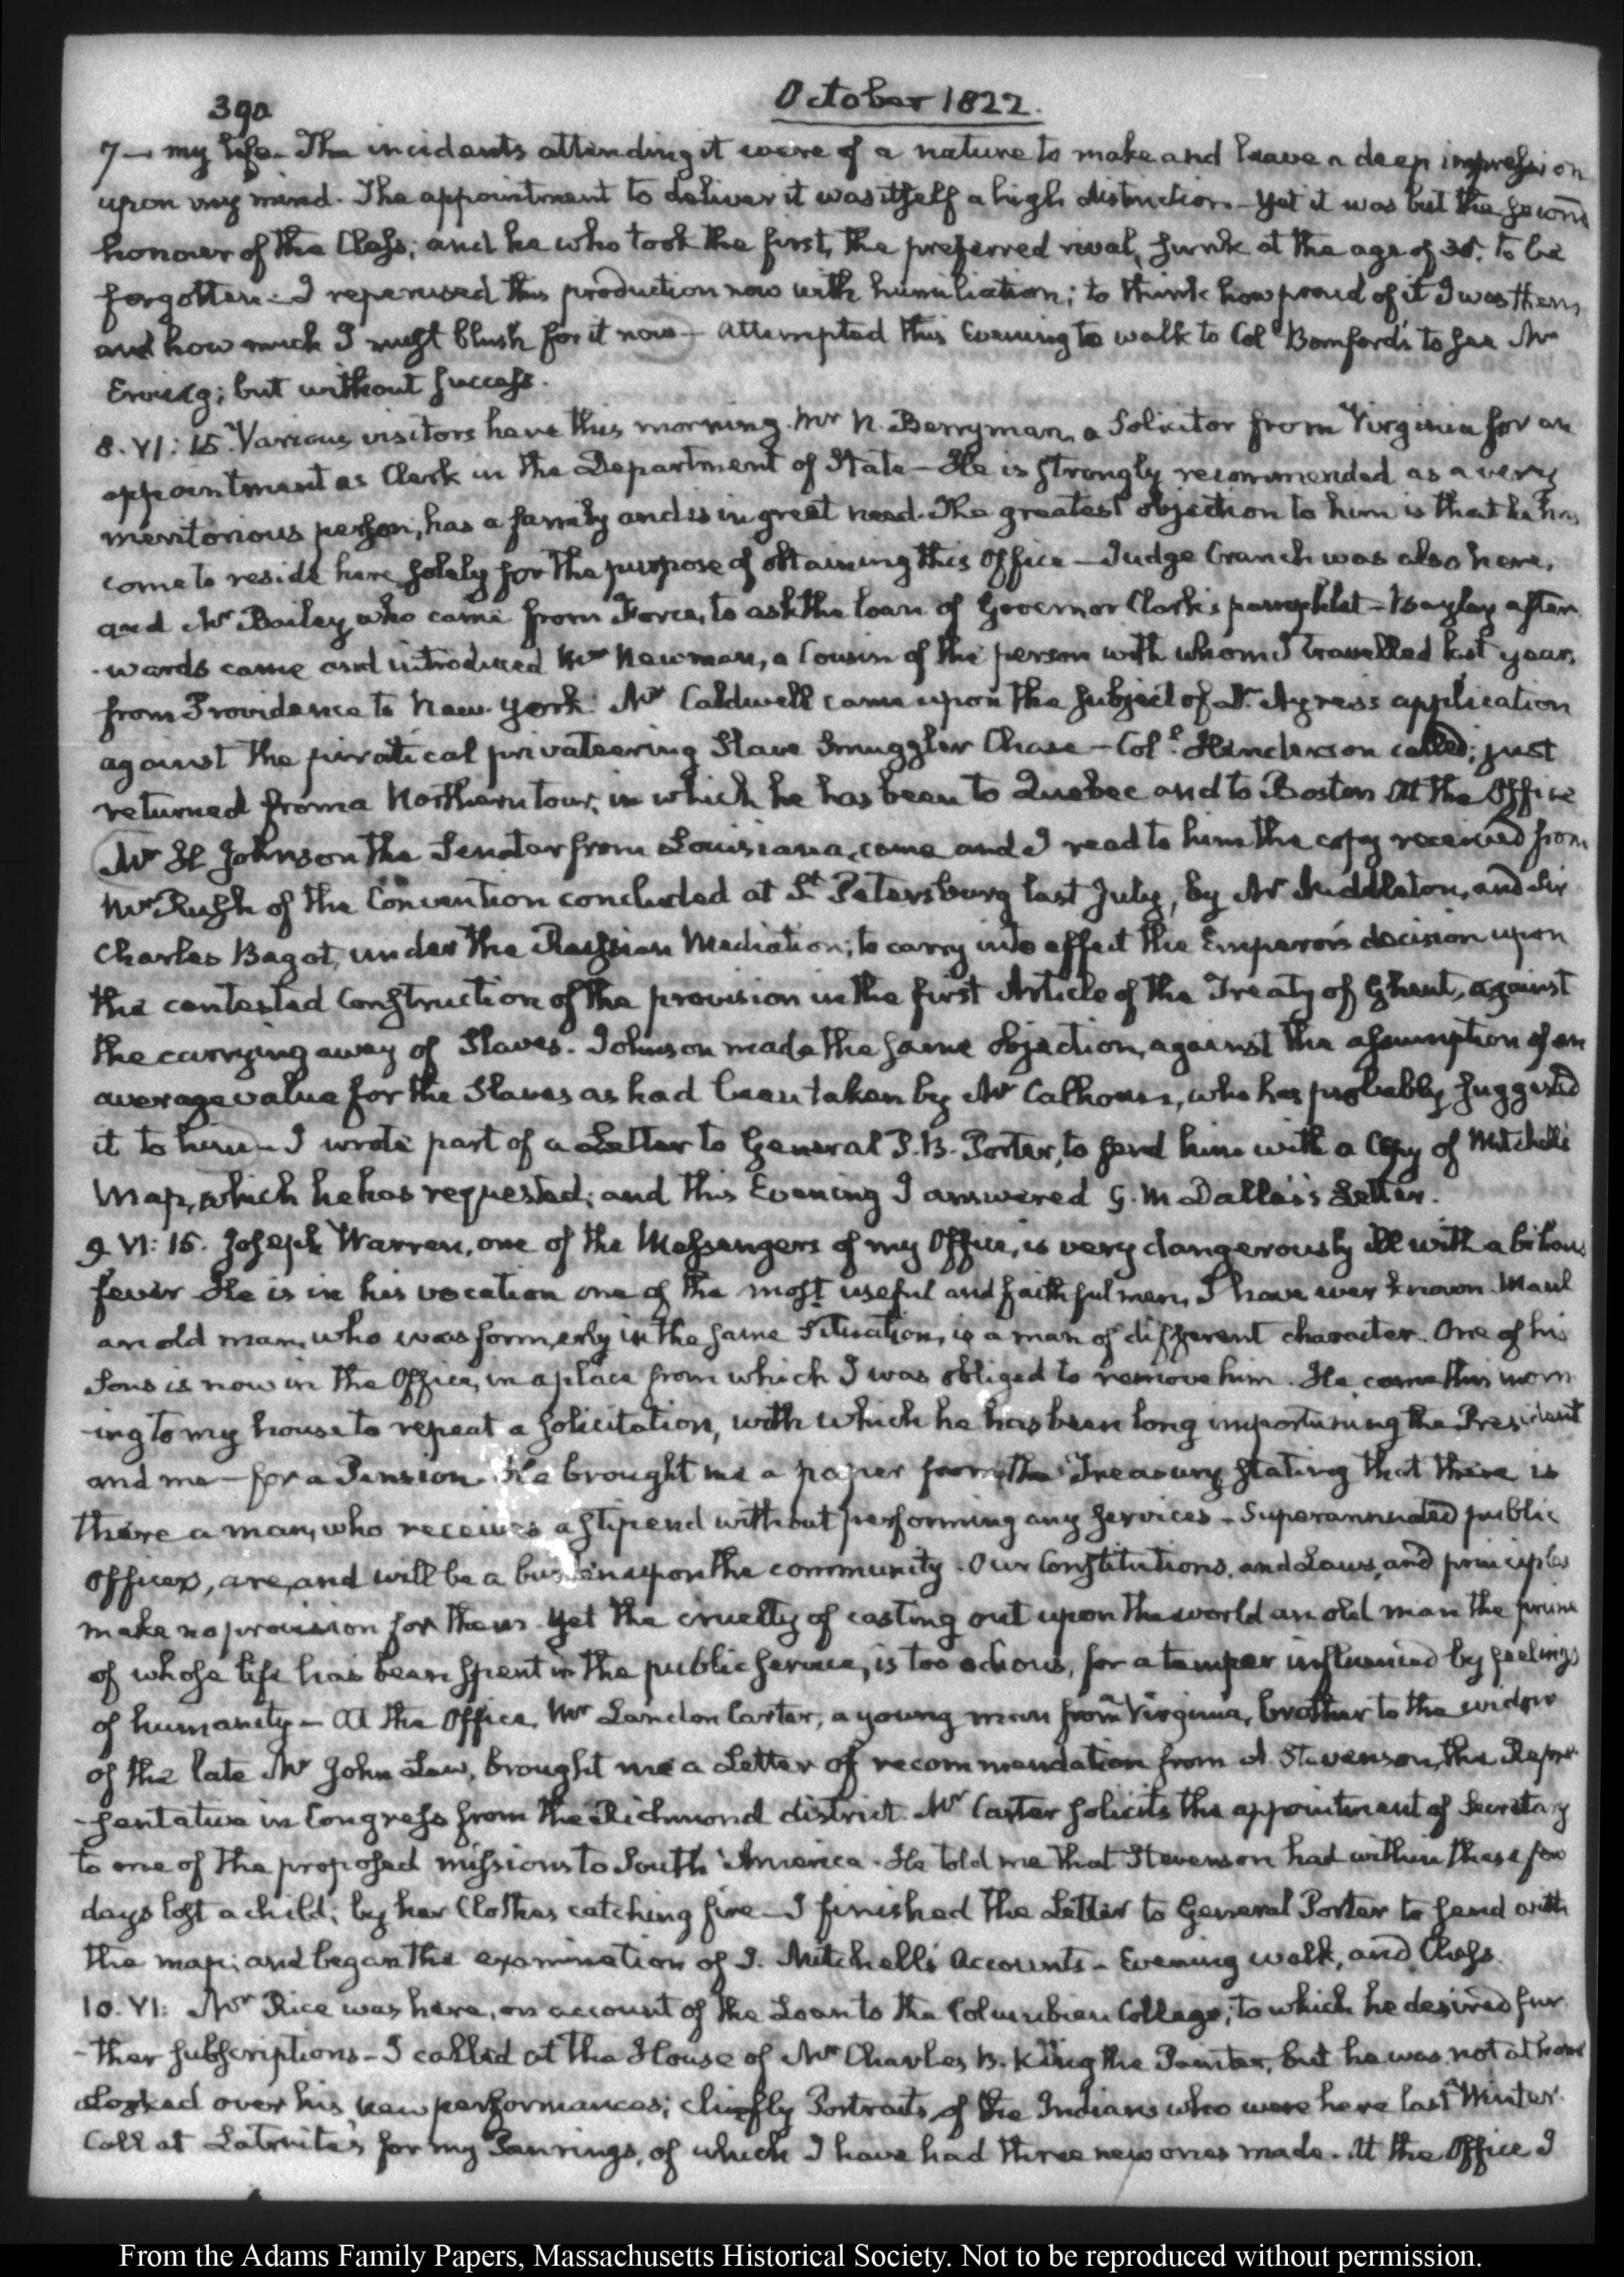 390
October 1822.
7— my life. The incidents attending it were of a nature to make and leave a deep impression
upon my mind. The appointment to deliver it was itself a high distinction — Yet it was but the second
honour of the Class; and he who took the first, the preferred rival, sunk at the age of 35. to be
forgotten. I reperused this production now with humiliation; to think how proud of it I was then,
and how much I must blush for it now — Attempted this Evening to walk to Coll. Bomford's to see Mr
Erving; but without success.
8. VI: 15. Various visitors have this morning. Mr N. Berryman, a Solicitor from Virginia for an
appointment as Clerk in the Department of State — He is strongly recommended as a very
meritorious person, has a family and is in great need. The greatest objection to him is that he has
come to reside here solely for the purpose of obtaining this Office — Judge Cranch was also here,
and Mr Bailey who came from Force, to ask the loan of Governor Clark's pamphlet — Bayley after
-wards came and introduced Mr Newman, a Cousin of the person with whom I travelled last year,
from Providence to New-York. Mr Caldwell came upon the subject of Dr. Ayres's application
against the piratical privateering Slave Smuggler Chase — Coll. Henderson called; just
returned from a Northern tour, in which he has been to Quebec and to Boston. At the Office
Mr H Johnson the Senator from Louisiana, came and I read to him the copy received from
Mr Rush of the Convention concluded at St. Petersburg last July, by Mr Middleton, and Sir
Charles Bagot, under the Russian Mediation; to carry into effect the Emperor's decision upon
the contested Construction of the provision in the first Article of the Treaty of Ghent, against
the carrying away of Slaves. Johnson made the same objection, against the assumption of an
average value for the Slaves as had been taken by Mr Calhoun, who has probably suggested
it to him — I wrote part of a Letter to General P. B. Porter, to send him with a Copy of Mitchell's
Map, which he has requested; and this Evening I answered G. M Dallas's Letter.
9. VI: 15. Joseph Warren, one of the Messengers of my Office, is very dangerously ill with a bilious
fever. He is in his vocation one of the most useful and faithful men, I have ever known. Maul
an old man, who was formerly in the same Situation, is a man of different character. One of his
Sons is now in the Office, in a place from which I was obliged to remove him. He came this morn
-ing to my house to repeat a solicitation, with which he has been long importuning the President
and me — for a Pension. He brought me a paper from the Treasury, stating that there is
there a man, who receives a stipend without performing any services — Superannuated public
Officers, are, and will be a burden upon the community. Our Constitutions, and Laws, and principles
make no provision for them. Yet the cruelty of casting out upon the world an old man the prime
of whose life has been spent in the public service, is too odious, for a temper influenced by feelings
of humanity — At the Office, Mr Landon Carter, a young man from Virginia, brother to the widow
of the late Mr John Law, brought me a Letter of recommendation from A. Stevenson, the Repre
-sentative in Congress from the Richmond district. Mr Carter solicits the appointment of Secretary
to one of the proposed missions to South America. He told me that Stevenson had within these few
days lost a child; by her Clothes catching fire — I finished the Letter to General Porter to send with
the map; and began the examination of J. Mitchell's Accounts — Evening walk, and Chess.
10. VI: Mr Rice was here, on account of the Loan to the Columbian College; to which he desired fur
-ther subscriptions — I called at the House of Mr Charles B. King the Painter, but he was not at home
Looked over his new performances; chiefly Portraits of the Indians who were here last Winter.
Call at for my of which I have had three new ones made. At the Office I
From the Adams Family Papers, Massachusetts Historical Society. Not to be reproduced without permission.